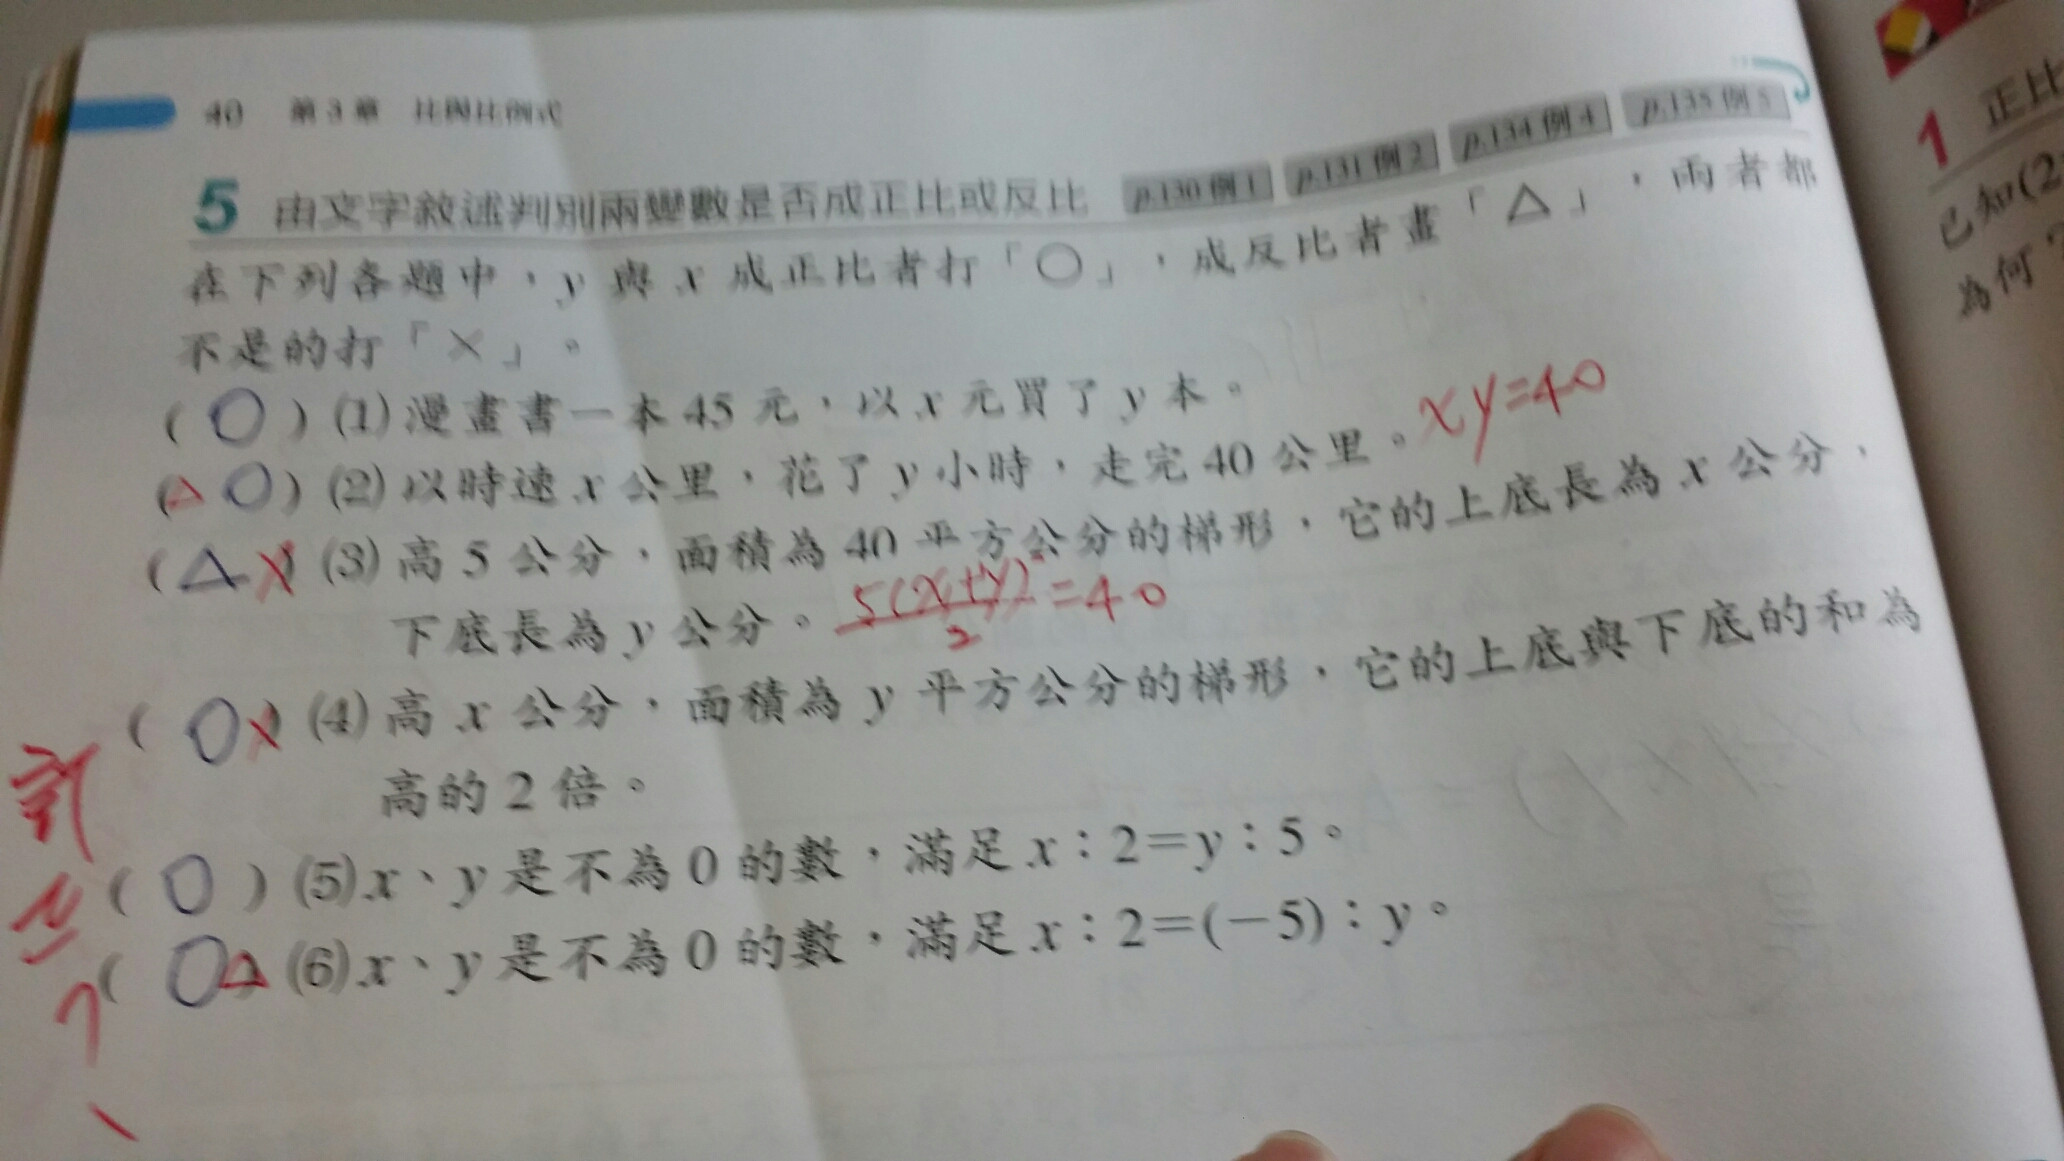 40 第3章 比與比例式
5 由文字敘述判別兩變數是否成正比或反比 p.130例1 p.131例2 p.134例4 p.135例5
在下列各題中,y 與 x 成正比者打「○」,成反比者畫「△」,兩者都
不是的打「×」。
( O ) (1) 漫畫書一本 45 元,以 x 元買了 y 本。
(△ O ) (2) 以時速 x 公里,花了 y 小時,走完 40 公里。 xy=40
( △ X ) (3) 高 5 公分,面積為 40 平方公分的梯形,它的上底長為 x 公分,
下底長為 y 公分。 5(x+y)/2=40
( O X ) (4) 高 x 公分,面積為 y 平方公分的梯形,它的上底與下底的和為
高的 2 倍。
( O ) (5) x、y 是不為 0 的數,滿足 x:2=y:5。
( O △ (6) x、y 是不為 0 的數,滿足 x:2=(-5):y。
1 正比
已知(2
為何?